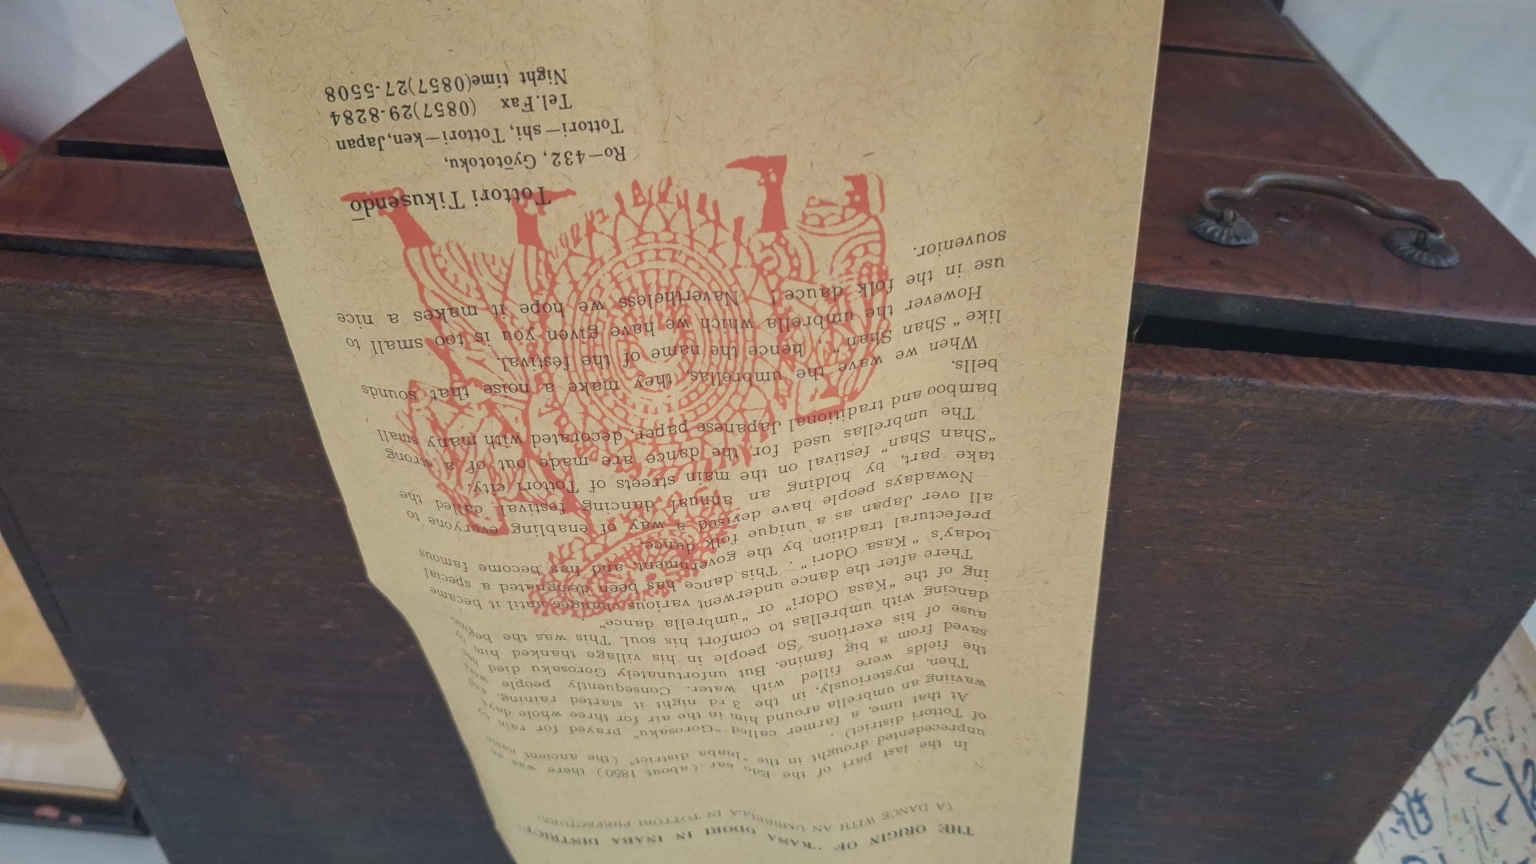 THE ORIGIN OF "KASA ODORI IN INABA DISTRICT"
(A DANCE WITH AN UMBRELLA IN TOTTORI PREFECTURE)
In the last part of the Edo ear (about 1850) there was
unprecedented drought in the "Inaba district" (the ancient name
of Tottori district) .
At that time, a farmer called "Gorosaku" prayed for rain by
waviing an umbrella around him in the air for three whole days
Then, mysteriously, in the 3rd night it started raining,
the fields were filled with water. Consequently people
saved from a big famine. But unfortunately Gorosaku died
ause of his exertions. So people in his village thanked him
dancing with umbrellas to comfort his soul. This was the
ing of the "Kasa Odori" or "umbrella dance"
There after the dance underwent various changes until it became
today's " Kasa Odori " . This dance has been designated a special
prefectural tradition by the government and has become famous
all over Japan as a unique folk dance.
Nowadays people have devised a way of enabling everyone to
take part, by holding an annual dancing festival called the
"Shan Shan" festival on the main streets of Tottori city.
The umbrellas used for the dance are made out of a strong
bamboo and traditional Japanese paper, decorated with many small
bells.
When we wave the umbrellas, they make a noise that sounds
like " Shan Shan ", hence the name of the festival.
However the umbrella which we have given you is too small to
use in the folk dauce ! Navertheless we hope it makes a nice
souvenior.
Tottori Tikusendō
Ro-432, Gyōtotoku,
Tottori-shi, Tottori-ken,Japan
Tel.Fax (0857)29-8284
Night time(0857)27-5508